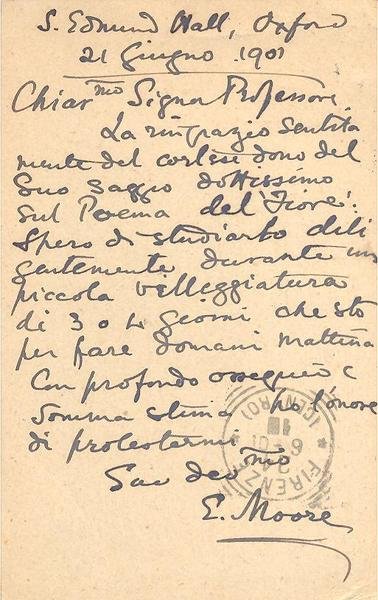 S. Edmund Hall, Oxford
21 Giugno 1901
Chiar.mo Signor Professore
La ringrazio sentita
mente del cortese dono del
Suo saggio dottissimo
sul Poema del 'Fiore'.
Spero di studiarlo dili
gentemente durante una
piccola velleggiatura
di 3 o 4 giorni che sto
per fare domani mattina
Con profondo ossequio e
somma stima ho l'onore
di protestarmi
Suo devmo
E. Moore
FIRENZE
(CENTRO)